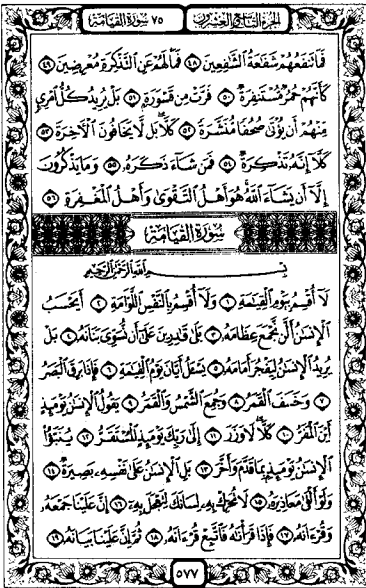 الجزء التاسع والعشرون
٧٥ سورة القيامة
فَمَا تَنفَعُهُمْ شَفَاعَةُ الشَّافِعِينَ ٤٨ فَمَا لَهُمْ عَنِ التَّذْكِرَةِ مُعْرِضِينَ ٤٩
كَأَنَّهُمْ حُمُرٌ مُّسْتَنفِرَةٌ ٥٠ فَرَّتْ مِن قَسْوَرَةٍ ٥١ بَلْ يُرِيدُ كُلُّ امْرِئٍ
مِّنْهُمْ أَن يُؤْتَىٰ صُحُفًا مُّنَشَّرَةً ٥٢ كَلَّا بَل لَّا يَخَافُونَ الْآخِرَةَ ٥٣
كَلَّا إِنَّهُ تَذْكِرَةٌ ٥٤ فَمَن شَاءَ ذَكَرَهُ ٥٥ وَمَا يَذْكُرُونَ
إِلَّا أَن يَشَاءَ اللَّهُ هُوَ أَهْلُ التَّقْوَىٰ وَأَهْلُ الْمَغْفِرَةِ ٥٦
سُورَةُ الْقِيَامَةِ
بِسْمِ اللَّهِ الرَّحْمَٰنِ الرَّحِيمِ
لَا أُقْسِمُ بِيَوْمِ الْقِيَامَةِ ١ وَلَا أُقْسِمُ بِالنَّفْسِ اللَّوَّامَةِ ٢ أَيَحْسَبُ
الْإِنسَانُ أَلَّن نَّجْمَعَ عِظَامَهُ ٣ بَلَىٰ قَادِرِينَ عَلَىٰ أَن نُّسَوِّيَ بَنَانَهُ ٤ بَلْ
يُرِيدُ الْإِنسَانُ لِيَفْجُرَ أَمَامَهُ ٥ يَسْأَلُ أَيَّانَ يَوْمُ الْقِيَامَةِ ٦ فَإِذَا بَرِقَ الْبَصَرُ
٧ وَخَسَفَ الْقَمَرُ ٨ وَجُمِعَ الشَّمْسُ وَالْقَمَرُ ٩ يَقُولُ الْإِنسَانُ يَوْمَئِذٍ
أَيْنَ الْمَفَرُّ ١٠ كَلَّا لَا وَزَرَ ١١ إِلَىٰ رَبِّكَ يَوْمَئِذٍ الْمُسْتَقَرُّ ١٢ يُنَبَّأُ
الْإِنسَانُ يَوْمَئِذٍ بِمَا قَدَّمَ وَأَخَّرَ ١٣ بَلِ الْإِنسَانُ عَلَىٰ نَفْسِهِ بَصِيرَةٌ ١٤
وَلَوْ أَلْقَىٰ مَعَاذِيرَهُ ١٥ لَا تُحَرِّكْ بِهِ لِسَانَكَ لِتَعْجَلَ بِهِ ١٦ إِنَّ عَلَيْنَا جَمْعَهُ
وَقُرْآنَهُ ١٧ فَإِذَا قَرَأْنَاهُ فَاتَّبِعْ قُرْآنَهُ ١٨ ثُمَّ إِنَّ عَلَيْنَا بَيَانَهُ ١٩
٥٧٧